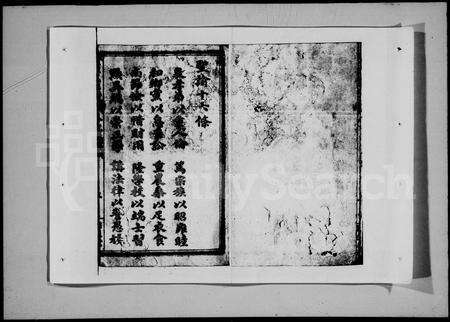 聖諭十六條
敦孝弟以重人倫 篤宗族以昭雍睦
和鄉黨以息爭訟 重農桑以足衣食
尚節儉以惜財用 隆學校以端士習
黜異端以崇正學 講法律以儆愚頑
FamilySearch